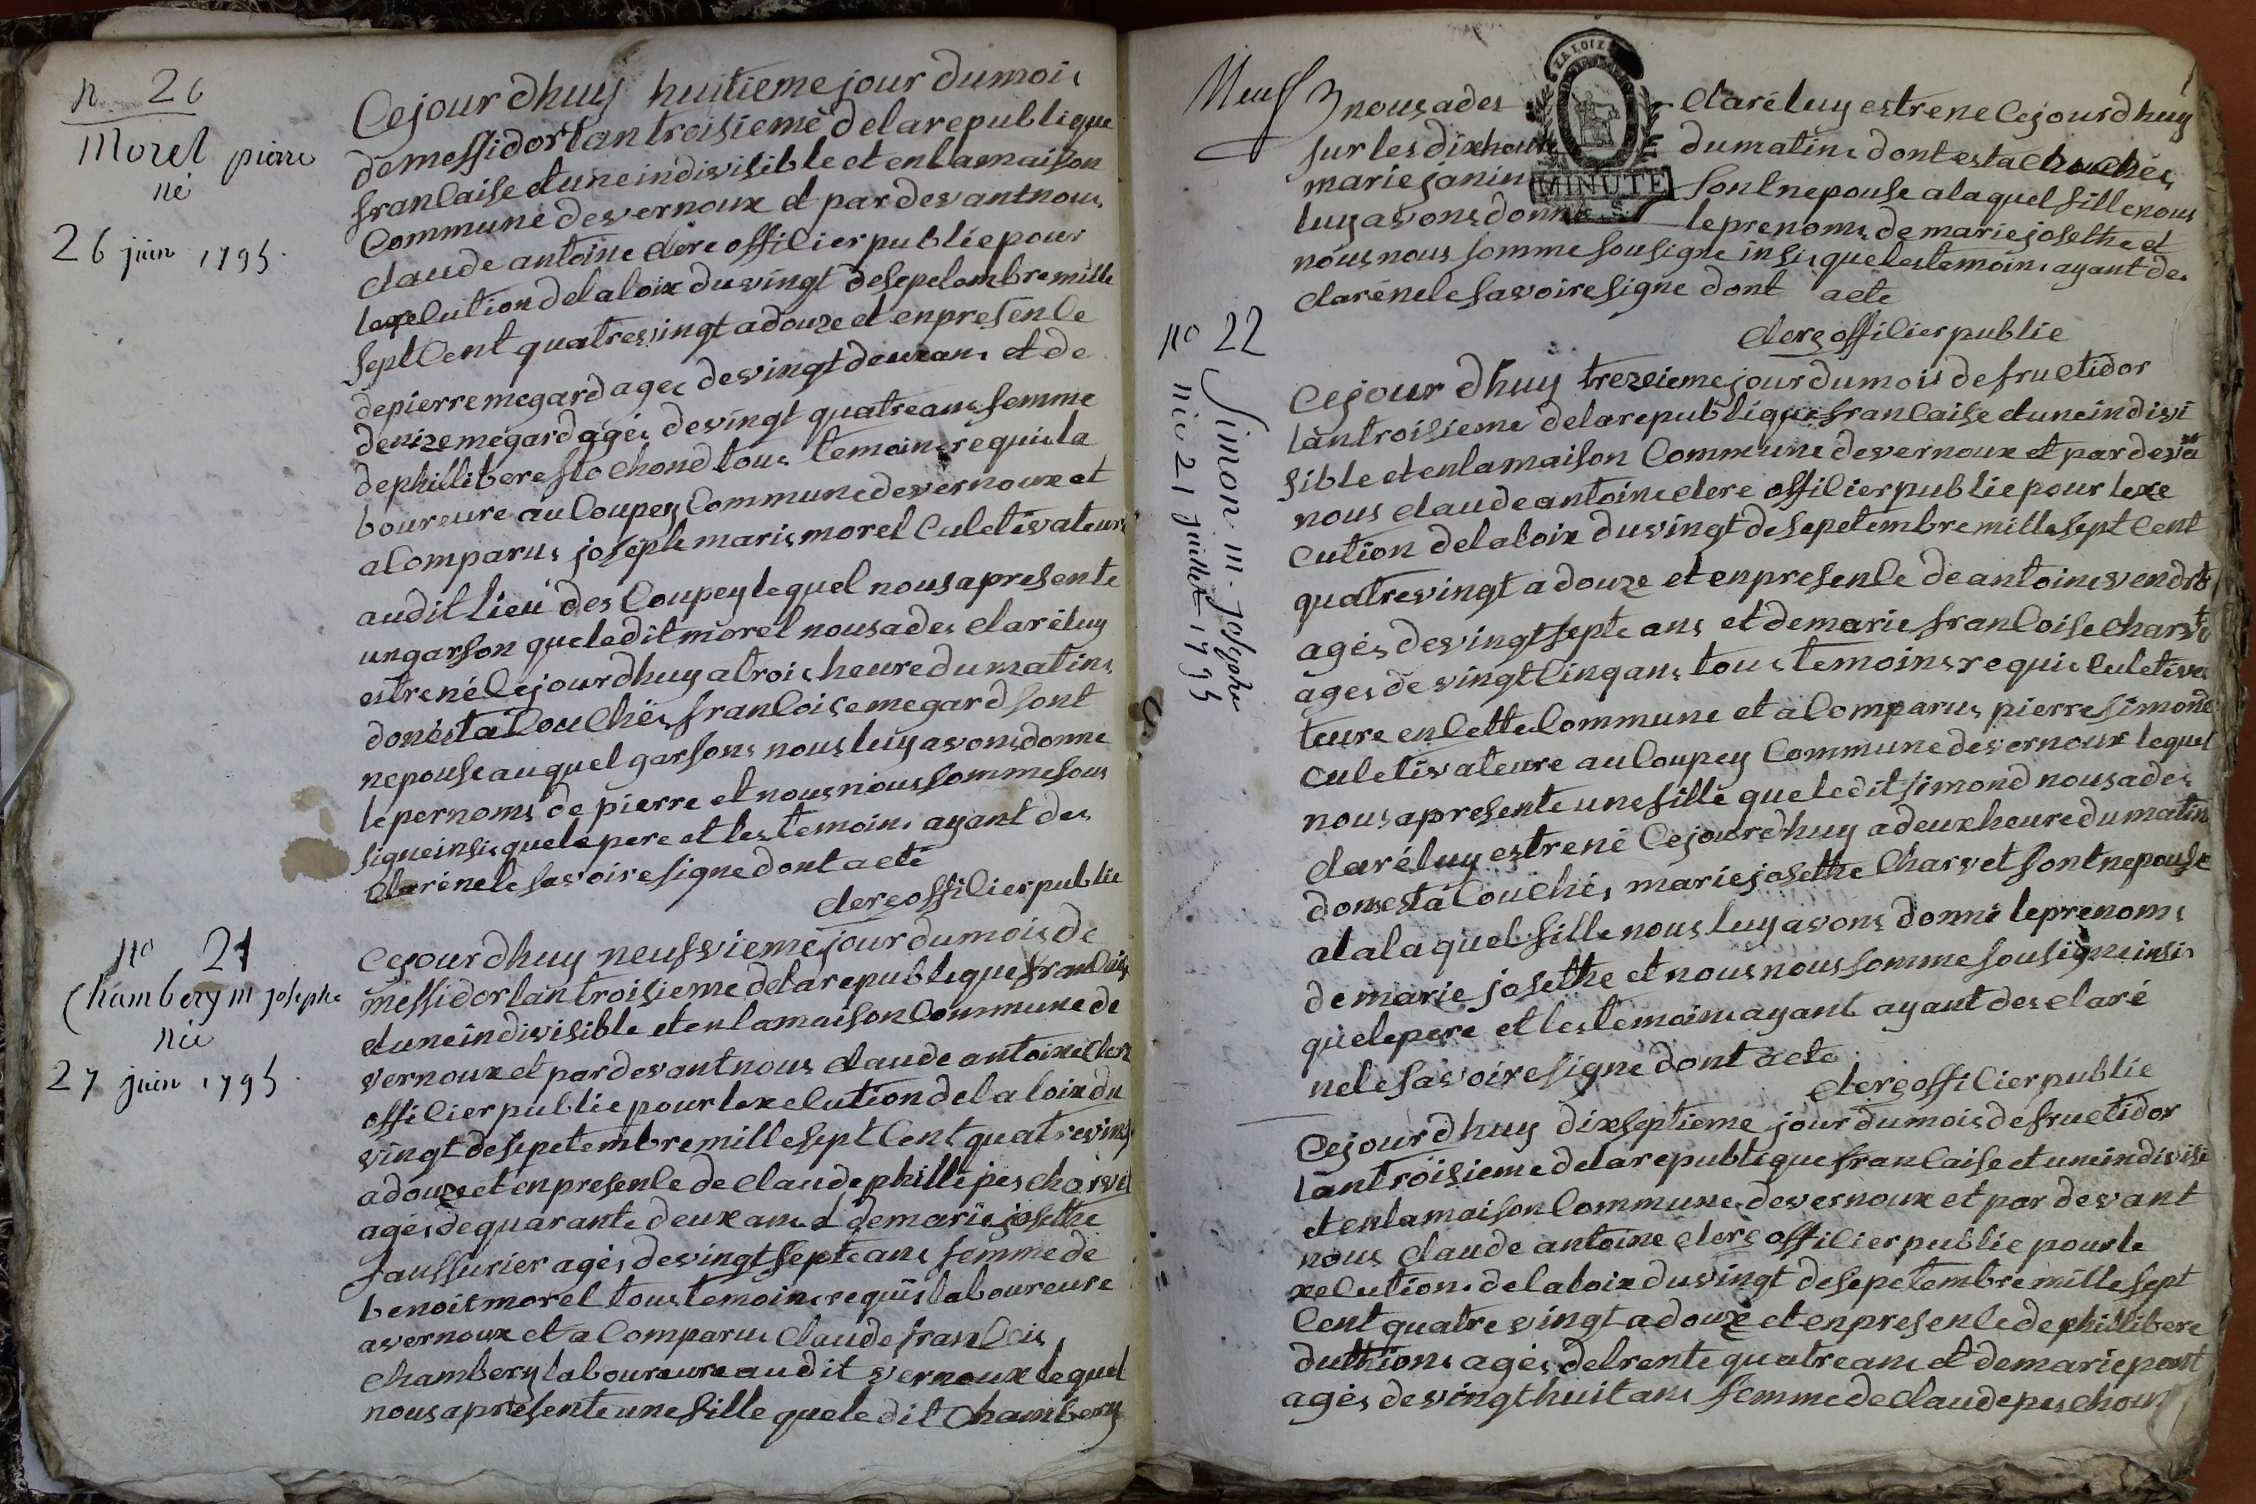 n. 26
Morel pierre
né
26 juin 1795.
Cejour dhuy huitieme jour dumois
demessidor lantroisieme delarepublique
francaise etuneindivisible et enlamaison
Commune devernoux et pardevantnous
claude antoine clere officier publie pour
lexecution delaloix duvingt desepetembre mille
sept Cent quatrevingt adouze et enpresence
depierre megard ageé devingt deuxans et de
denize mégard agéé devingt quatreans femme
dephillibere stochond tous temoins requis la
boureure au Coupey Commune devernoux et
aComparus joseple marie morel Culetivateure
audit lieu des Coupey lequel nousapresente
ungarson queledit morel nousades claréluy
estrené Cejourdhuy atrois heure dumatins
donésta Couchés francoise megard sont
nepouse auquel garsons nous luyavonsdonne
lepernoms de pierre et nousnoussommesous
signeinsis quelepere et les temoins ayant des
clarénele savoire signe dont acte
clere officier publie
no 21
Chambery m josephe
née
27 juin 1795.
Cejourdhuy neufvieme jour dumois de
messidor lantroisieme delarepublique francaise
etuneindivisible etenlamaison Commune de
vernoux et pardevant nous claude antoine clere
officier publie pour lexecution dela loix du
vingt desepetembre mille sept Cent quatrevingt
adouze et enpresence de claude phillipes charvet
agés de quarante deux ans et demarie josethe
faussurier agés devingt septe ans femme de
benoit morel tous temoins requis laboureure
avernoux et a Comparus claude francois
chambery laboureure audit vernoux lequel
nousapresente une fille quele dit chambery
Neuf
nousades claréluy estrene Cejourdhuy
sur les dixheure dumatins dont esta Chouchée
marie janin sont nepouse alaquel fille nous
luyavons donné leprenoms de marie josethe et
nous nous somme sousigne insis queles temoins ayant des
clarénele savoire signe dont acte
MINUTE
clere officier publie
no 22
Simon m. josephe
née 21 juillet 1795
Cejour dhuy trezeieme jour dumois de fructidor
lantroisieme delarepublique francaise etuneindivi
sible et enlamaison Commune devernoux et pardevant
nous claude antoine clere officier publie pour lexe
cution delaloix duvingt desepetembre mille sept Cent
quatrevingt adouze et enpresence de antoine vendro
agés devingt septe ans et demarie francoise charvet
ages de vingt Cinqans tous temoins requis culetiva
teure en Cette Commune et a Comparus pierre simond
culetivateure au Coupey Commune devernoux lequel
nousapresente une fille queledit simond nousades
claréluy estrené Cejourdhuy adeuxheure dumatin
donesta Couchés marie josethe Charvet sont nepouse
alalaquel fille nous luyavons donné leprenoms
demarie josethe et nous nous somme sousigne insis
quelepere et les temoins ayant ayant desclaré
nele savoire signe dont acte
clere officier publie
Cejourdhuy dixseptieme jour dumois de fructidor
lantroisieme delarepublique francaise et uneindivisi
etenlamaison Commune devernoux et pardevant
nous claude antoine clere officier publie pour le
xecutions delaloix duvingt desepetembre mille sept
Cent quatrevingt adouze et enpresence de phillibere
duthions agés detrente quatre ans et demarie pont
agés devingt huit ans femme de claude peuchour